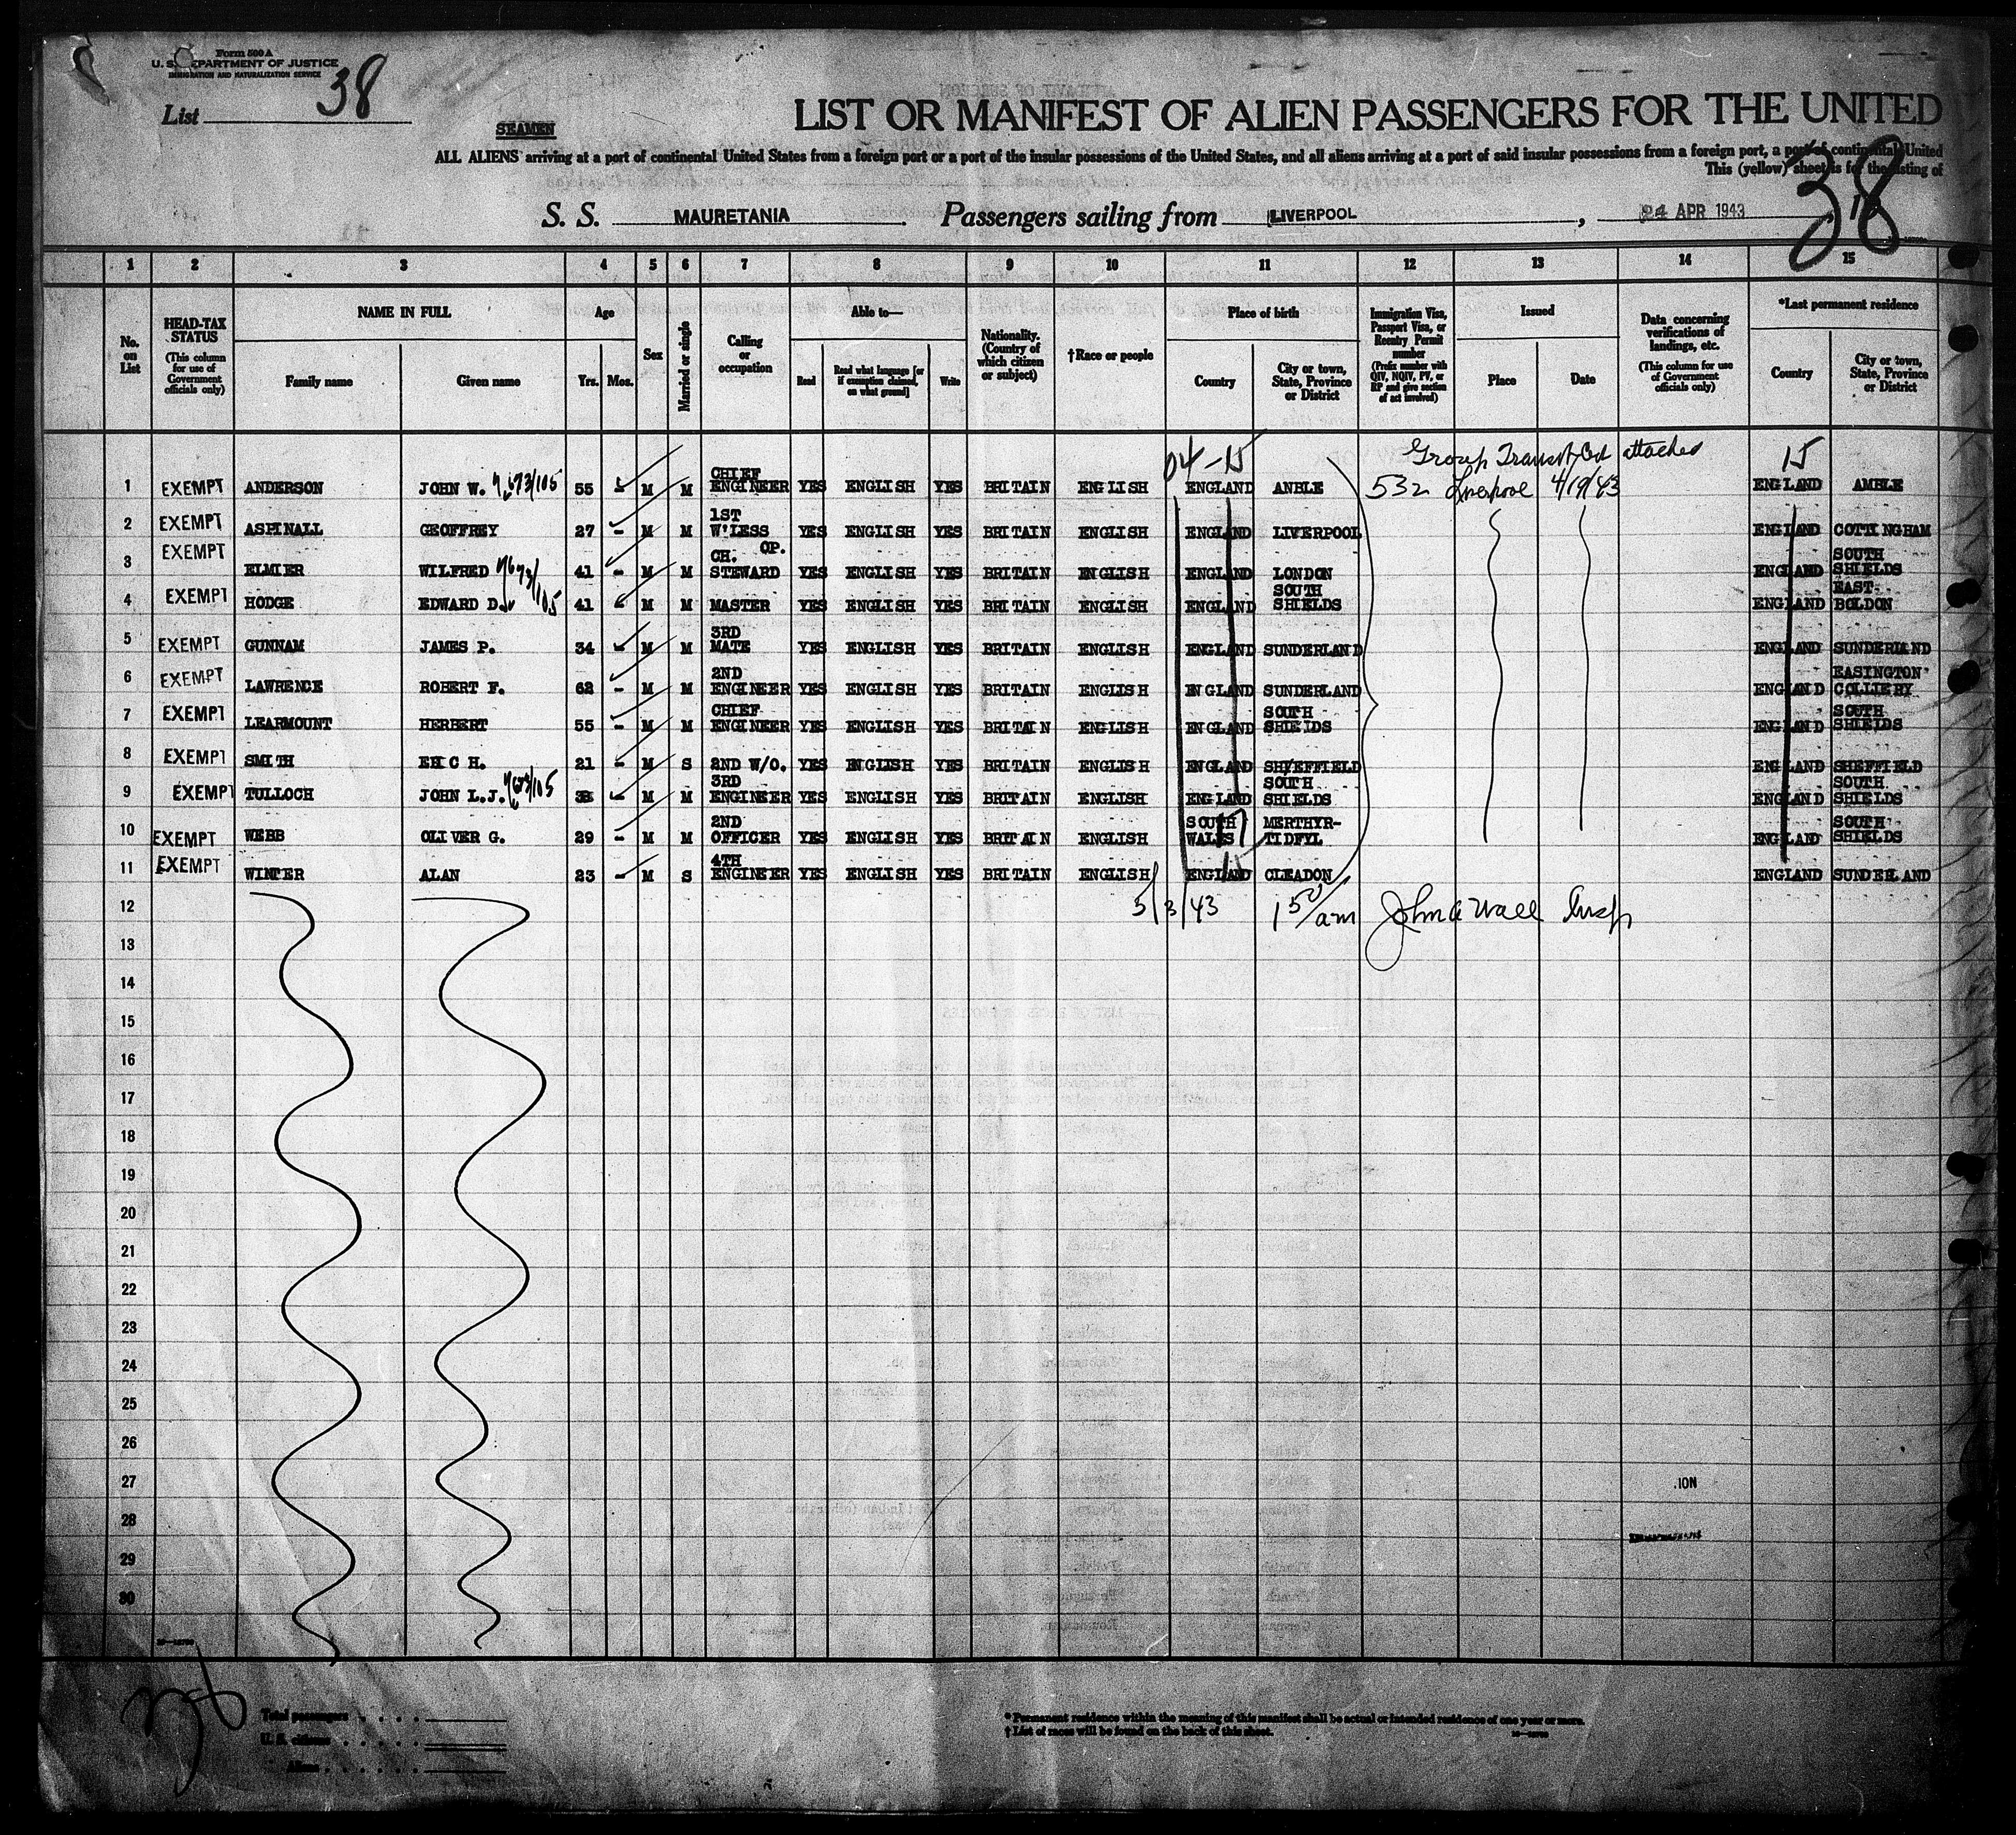 Form 500 A
U. S. DEPARTMENT OF JUSTICE
IMMIGRATION AND NATURALIZATION SERVICE
List 38
SEAMEN
LIST OR MANIFEST OF ALIEN PASSENGERS FOR THE UNITED
ALL ALIENS arriving at a port of continental United States from a foreign port or a port of the insular possessions of the United States, and all aliens arriving at a port of said insular possessions from a foreign port, a port of continental United
This (yellow) sheet is for the listing of
38
S. S. MAURETANIA Passengers sailing from LIVERPOOL, 24 APR 1943
1 2 3 4 5 6 7 8 9 10 11 12 13 14 15
No. on List
HEAD-TAX STATUS (This column for use of Government officials only)
NAME IN FULL
Family name Given name
Age
Yrs. Mos.
Sex
Married or single
Calling or occupation
Able to—
Read
Read what language [or if exemption claimed, on what ground]
Write
Nationality. (Country of which citizen or subject)
†Race or people
Place of birth
Country
City or town, State, Province or District
Immigration Visa, Passport Visa, or Reentry Permit number (Prefix number with QIV, NQIV, PV, or RP and give section of act involved)
Issued
Place Date
Data concerning verifications of landings, etc. (This column for use of Government officials only)
*Last permanent residence
Country
City or town, State, Province or District
04-15 Group Transit Cert attached 15
1 EXEMPT ANDERSON JOHN W. 55 - M M CHIEF ENGINEER YES ENGLISH YES BRITAIN ENGLISH ENGLAND AMBLE 532 Liverpool 4/19/43 ENGLAND AMBLE
2 EXEMPT ASPINALL GEOFFREY 27 - M M 1ST W'LESS OP. YES ENGLISH YES BRITAIN ENGLISH ENGLAND LIVERPOOL ENGLAND COTTINGHAM
3 EXEMPT ELMIER WILFRED 41 - M M CH. STEWARD YES ENGLISH YES BRITAIN ENGLISH ENGLAND LONDON ENGLAND SOUTH SHIELDS
4 EXEMPT HODGE EDWARD D. 41 - M M MASTER YES ENGLISH YES BRITAIN ENGLISH ENGLAND SOUTH SHIELDS ENGLAND EAST BOLDON
5 EXEMPT GUNNAM JAMES P. 34 - M M 3RD MATE YES ENGLISH YES BRITAIN ENGLISH ENGLAND SUNDERLAND ENGLAND SUNDERLAND
6 EXEMPT LAWRENCE ROBERT F. 62 - M M 2ND ENGINEER YES ENGLISH YES BRITAIN ENGLISH ENGLAND SUNDERLAND ENGLAND EASINGTON COLLIERY
7 EXEMPT LEARMOUNT HERBERT 55 - M M CHIEF ENGINEER YES ENGLISH YES BRITAIN ENGLISH ENGLAND SOUTH SHIELDS ENGLAND SOUTH SHIELDS
8 EXEMPT SMITH ERIC H. 21 - M S 2ND W/O. YES ENGLISH YES BRITAIN ENGLISH ENGLAND SHEFFIELD ENGLAND SHEFFIELD
9 EXEMPT TULLOCH JOHN L.J. - M M 3RD ENGINEER YES ENGLISH YES BRITAIN ENGLISH ENGLAND SOUTH SHIELDS ENGLAND SOUTH SHIELDS
10 EXEMPT WEBB OLIVER G. 29 - M M 2ND OFFICER YES ENGLISH YES BRITAIN ENGLISH SOUTH WALES 17 MERTHYR-TIDFYL ENGLAND SOUTH SHIELDS
11 EXEMPT WINTER ALAN 23 - M S 4TH ENGINEER YES ENGLISH YES BRITAIN ENGLISH ENGLAND CLEADON ENGLAND SUNDERLAND
12 5/3/43 1 50/am John A Wall Insp
13
14
15
16
17
18
19
20
21
22
23
24
25
26
27
28
29
30
Total passengers
U. S. citizens
Aliens
* Permanent residence within the meaning of this manifest shall be actual or intended residence of one year or more.
† List of races will be found on the back of this sheet.